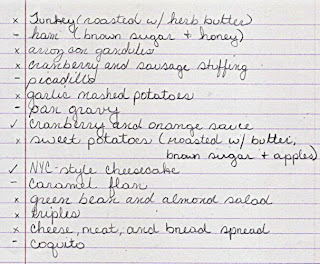 x Turkey (roasted w/ herb butter)
- ham (brown sugar + honey)
x arroz con gandules
x cranberry and sausage stuffing
- picadillo
x garlic mashed potatoes
- pan gravy
✓ cranberry and orange sauce
x sweet potatoes (roasted w/ butter,
brown sugar + apples)
✓ NYC-style cheesecake
- caramel flan
x green bean and almond salad
x triples
x cheese, meat, and bread spread
- coquito